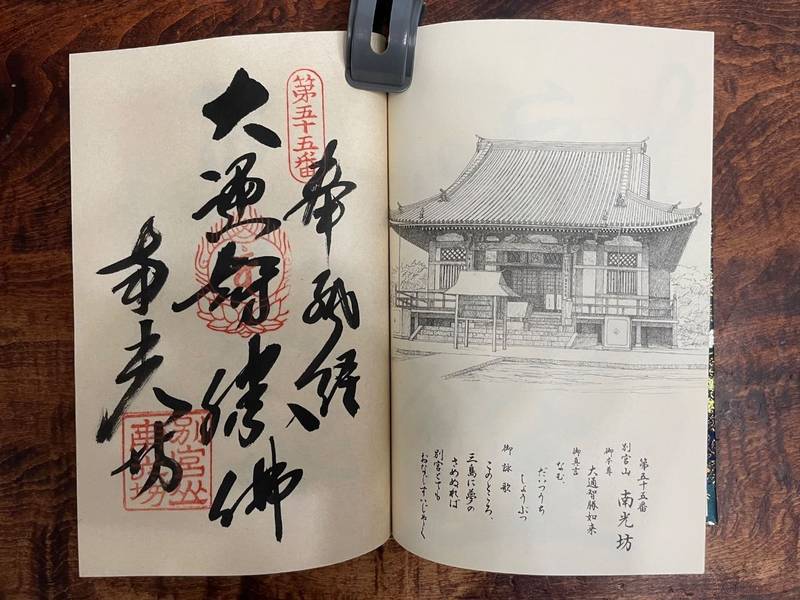 第五十五番
別宮山 南光坊
御本尊
大通智勝如来
御真言
なむ、
だいつうち
しょうぶつ
御詠歌
このところ、
三島に夢の
さめぬれば
別宮とても
おなじすいじゃく
奉納経
第五十五番
大通智勝佛
南光坊
別宮山
南光坊